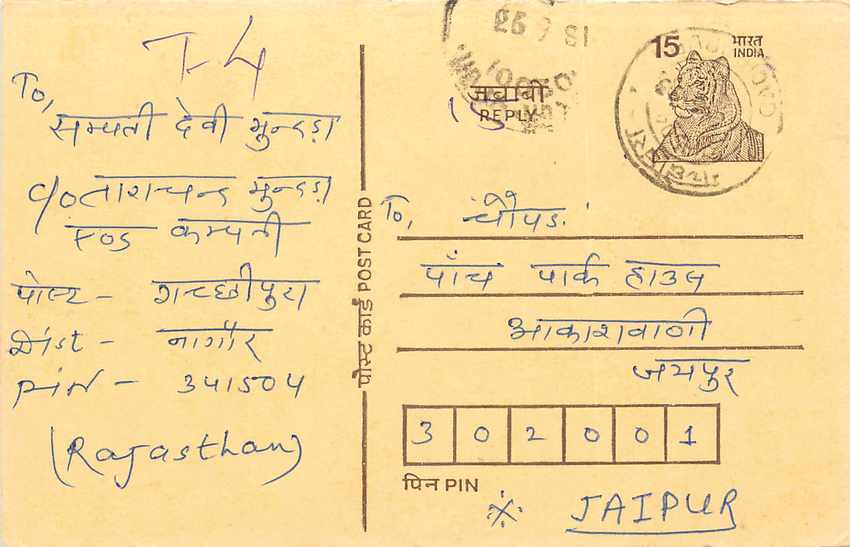 T-4
To,
सम्पती देवी मुन्दड़ा
C/o ताराचन्द मुन्दड़ा
FOS कम्पनी
पोस्ट - गच्छीपुरा
Dist - नागौर
pin - 341504
(Rajasthan)
पोस्ट कार्ड POST CARD
15 भारत
INDIA
जवाबी
REPLY
To, चौपड़
पाँच पार्क हाउस
आकाशवाणी
जयपुर
3 0 2 0 0 1
पिन PIN
JAIPUR